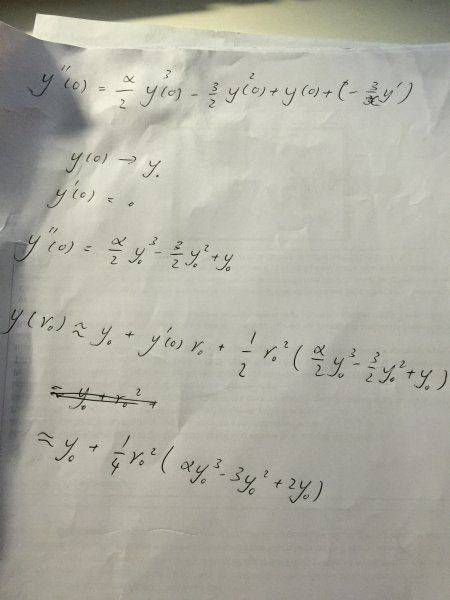 y''(0) = α/2 y³(0) - 3/2 y²(0) + y(0) + (- 3/x y')
y(0) → y₀
y'(0) = 0
y''(0) = α/2 y₀³ - 3/2 y₀² + y₀
y(r₀) ≈ y₀ + y'(0) r₀ + 1/2 r₀² ( α/2 y₀³ - 3/2 y₀² + y₀ )
≈ y₀ + r₀²
≈ y₀ + 1/4 r₀² ( αy₀³ - 3y₀² + 2y₀ )